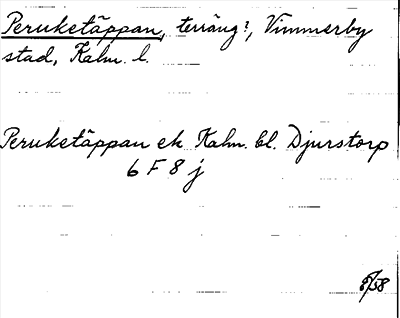 Peruketäppan, terräng?, Vimmerby
stad, Kalm. l.
Peruketäppan ek. Kalm. bl. Djurstorp
6 F 8 j
8/58